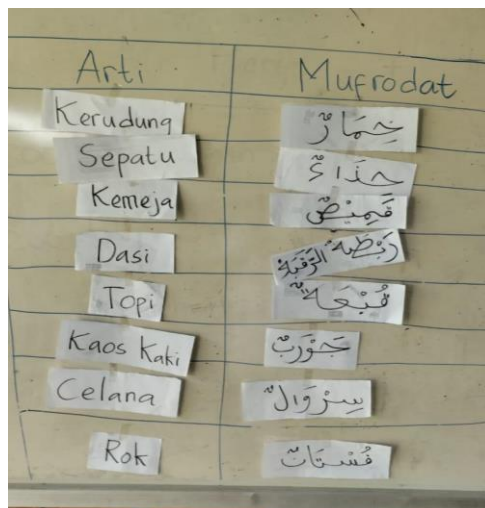 Arti Mufrodat
Kerudung خِمَارٌ
Sepatu حِذَاءٌ
Kemeja قَمِيْصٌ
Dasi رَبْطَةُ الرَّقَبَةِ
Topi قُبْعَةٌ
Kaos Kaki جَوْرَبٌ
Celana سِرْوَالٌ
Rok فُسْتَانٌ